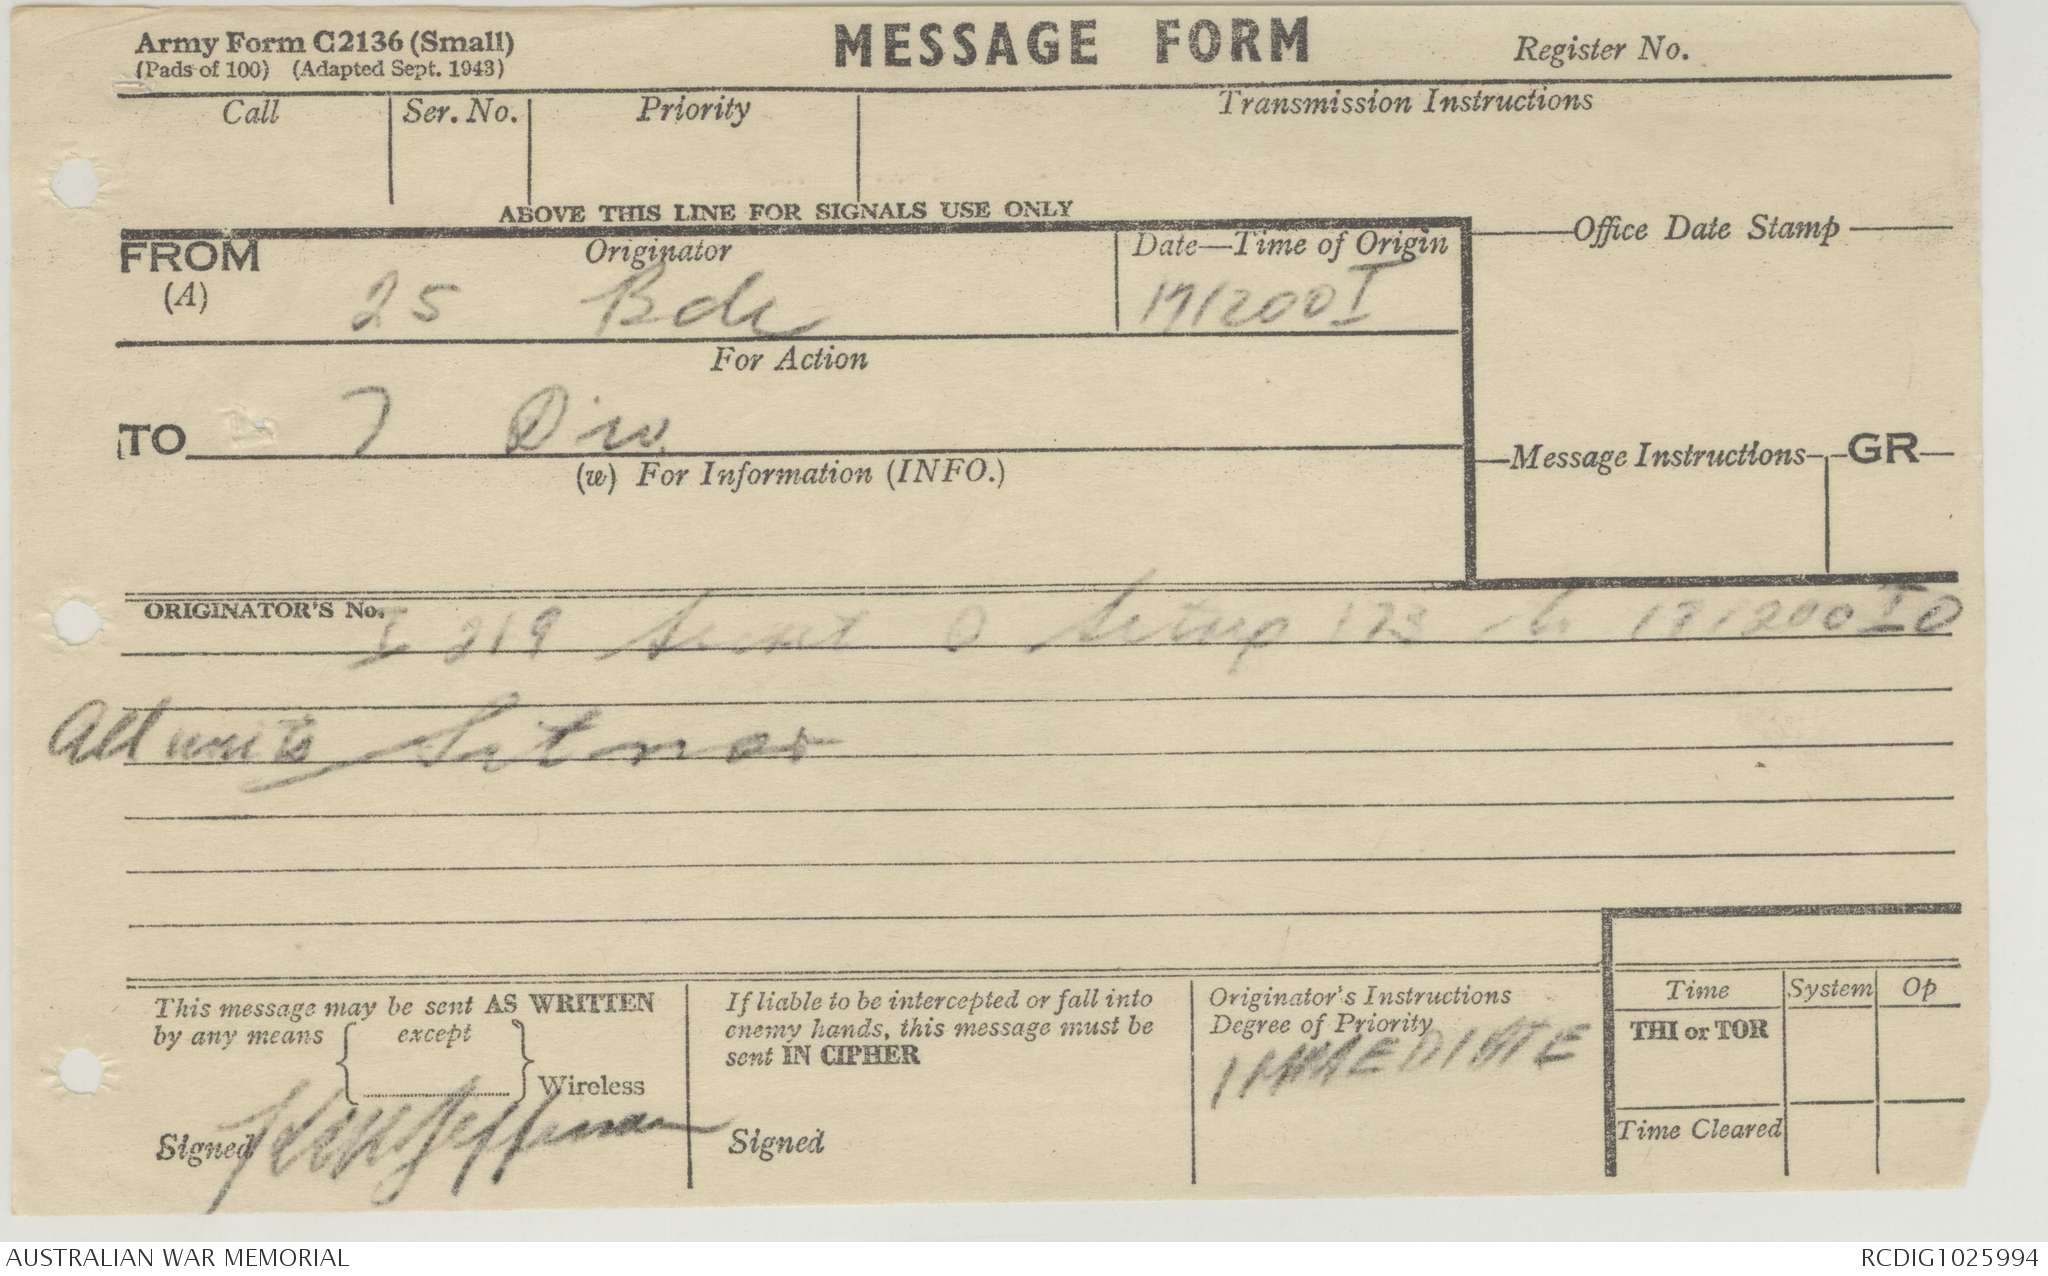 Army Form C2136 (Small)
(Pads of 100) (Adapted Sept. 1943)
MESSAGE FORM
Register No.
Call
Ser. No.
Priority
Transmission Instructions
ABOVE THIS LINE FOR SIGNALS USE ONLY
FROM
(A)
Originator
25 Bde
Date—Time of Origin
171200 I
Office Date Stamp
For Action
TO
7 Div.
(w) For Information (INFO.)
Message Instructions
GR
ORIGINATOR'S No.
I 219 Secret O Sitrep 173 to 171200 I O
All units Sit nor
This message may be sent AS WRITTEN
by any means
except
Wireless
Signed
If liable to be intercepted or fall into
enemy hands, this message must be
sent IN CIPHER
Signed
Originator's Instructions
Degree of Priority
IMMEDIATE
Time
System
Op
THI or TOR
Time Cleared
AUSTRALIAN WAR MEMORIAL
RCDIG1025994